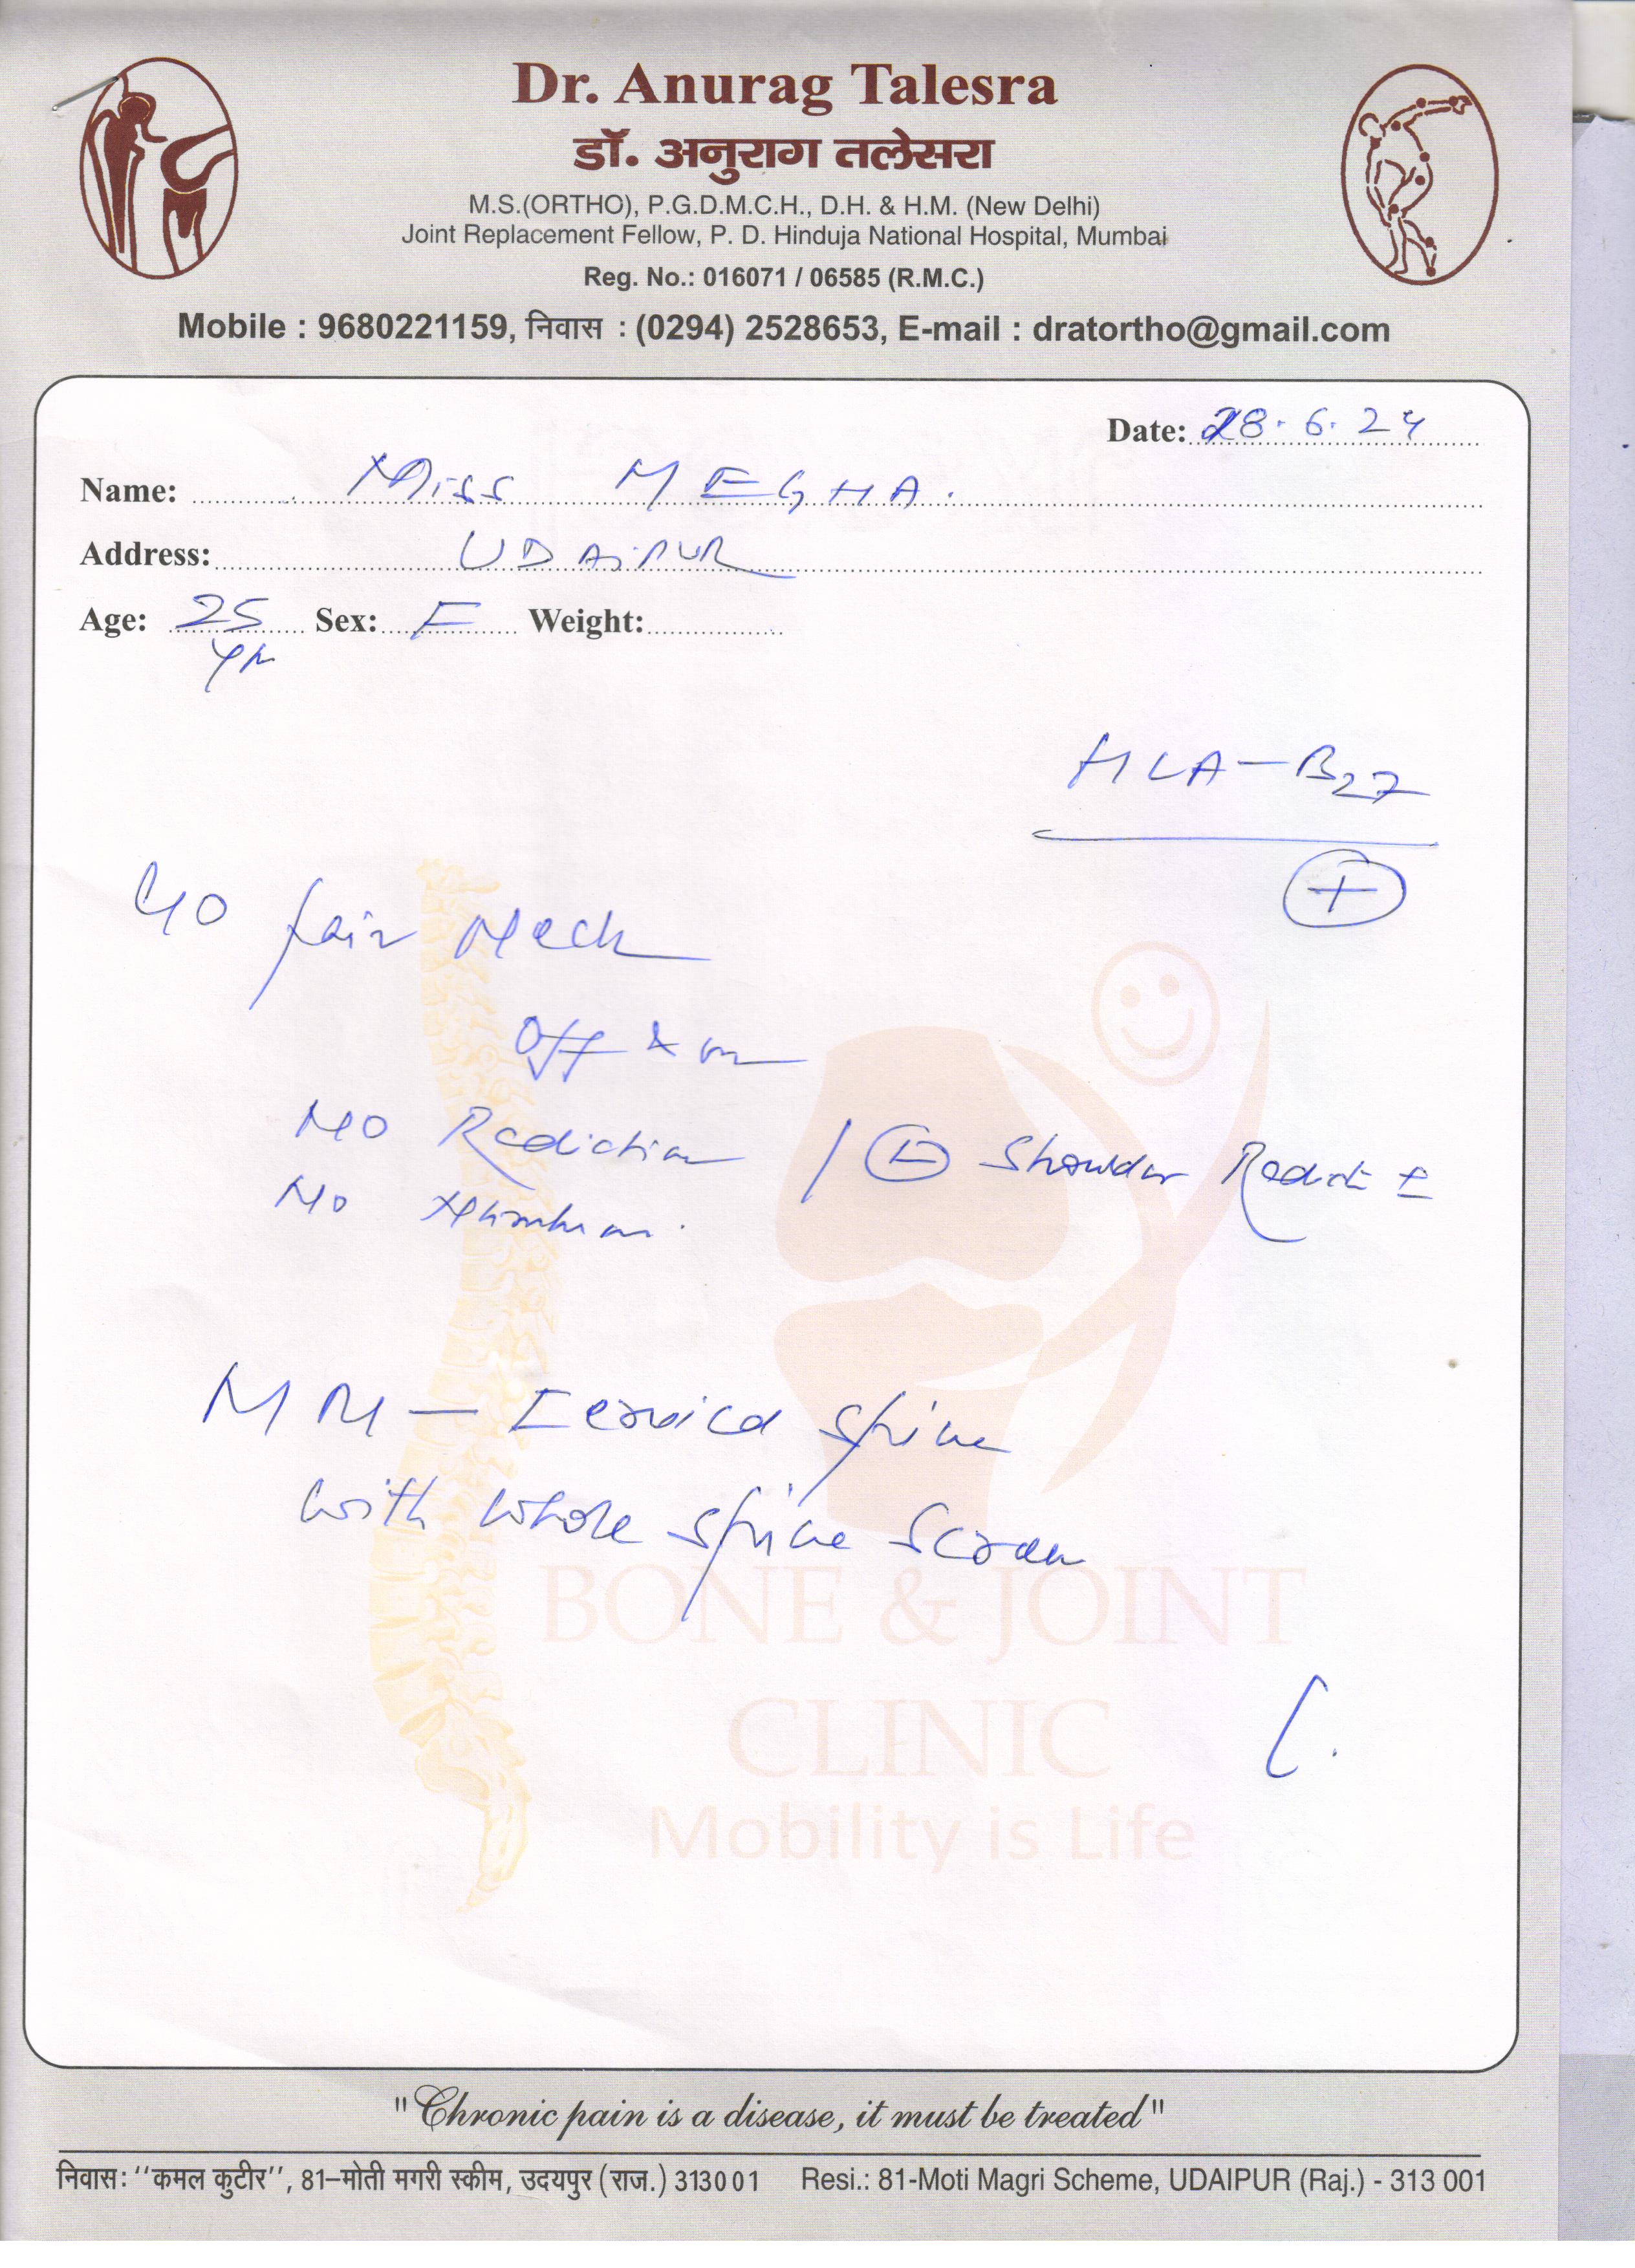 Dr. Anurag Talesra
डॉ. अनुराग तलेसरा
M.S.(ORTHO), P.G.D.M.C.H., D.H. & H.M. (New Delhi)
Joint Replacement Fellow, P. D. Hinduja National Hospital, Mumbai
Reg. No.: 016071 / 06585 (R.M.C.)
Mobile : 9680221159, निवास : (0294) 2528653, E-mail : dratortho@gmail.com
Date: 28.6.24
Name: Miss MEGHA.
Address: UDAiPUR
Age: 25 Sex: F Weight:
yr
HLA-B27
+
c/o pain Neck
Off & on
No Radiation / Shoulder Radiat ±
No
MRI - Cervical Spine
with whole spine Screen
BONE & JOINT
CLINIC
Mobility is Life
"Chronic pain is a disease, it must be treated"
निवास: ''कमल कुटीर'', 81-मोती मगरी स्कीम, उदयपुर (राज.) 313001 Resi.: 81-Moti Magri Scheme, UDAIPUR (Raj.) - 313 001